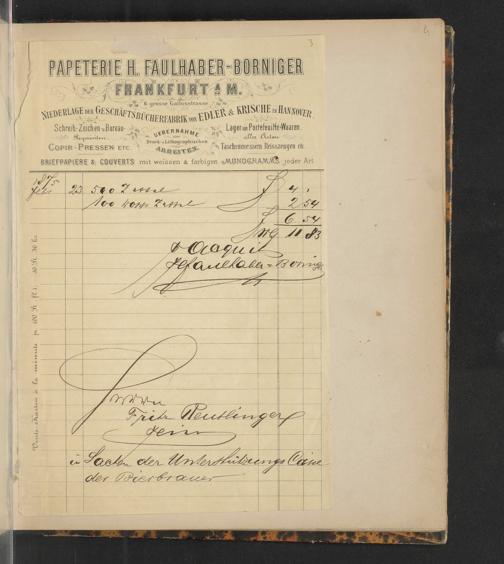 3
4
PAPETERIE H. FAULHABER-BORNIGER
FRANKFURT A/M.
6 grosse Gallusstrasse
NIEDERLAGE DER GESCHÄFTSBÜCHERFABRIK VON EDLER & KRISCHE IN HANNOVER
Schreib-Zeichen u. Bureau-
Requisiten.
COPIR-PRESSEN ETC.
UEBERNAHME
von
Druck u. Lithographischen
ARBEITEN.
Lager von Portefeuille-Waaren
aller Arten
Taschenmessern Reisszeugen etc.
BRIEFPAPIERE & COUVERTS mit weissen & farbigen MONOGRAMMS jeder Art
1875
23 500 Zettel f 4 .
100 Zettel 2 54
f 6 54
M 11 83
Acquit
H Faulhaber-Borniger
Herrn
Fritz Reutlinger
hier
in Sachen der Unterstützungs Casse
der Bierbrauer